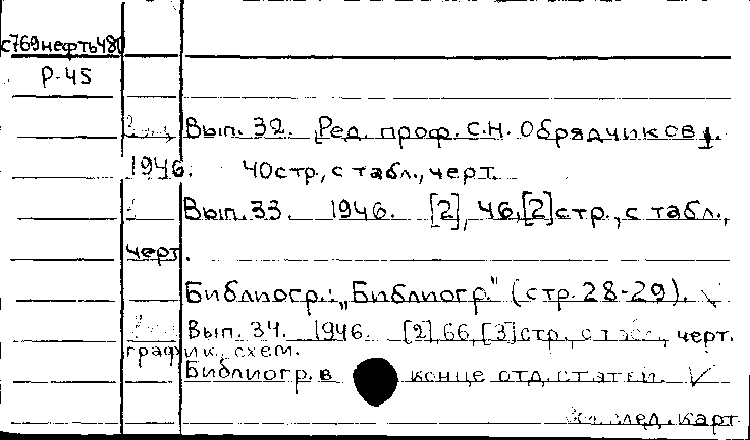 с769нефть480
Р-45
Вып. 32. [Ред. проф. С.Н. Обрядчиков].
1946. 40стр., с табл., черт.
Вып. 33. 1946. [2], 46, [2] стр., с табл.,
черт.
Библиогр.: „Библиогр." (стр. 28-29). ✓
Вып. 34. 1946. [2], 66, [3] стр., с табл., черт.
график, схем.
Библиогр. в конце отд. статей. ✓
след. карт